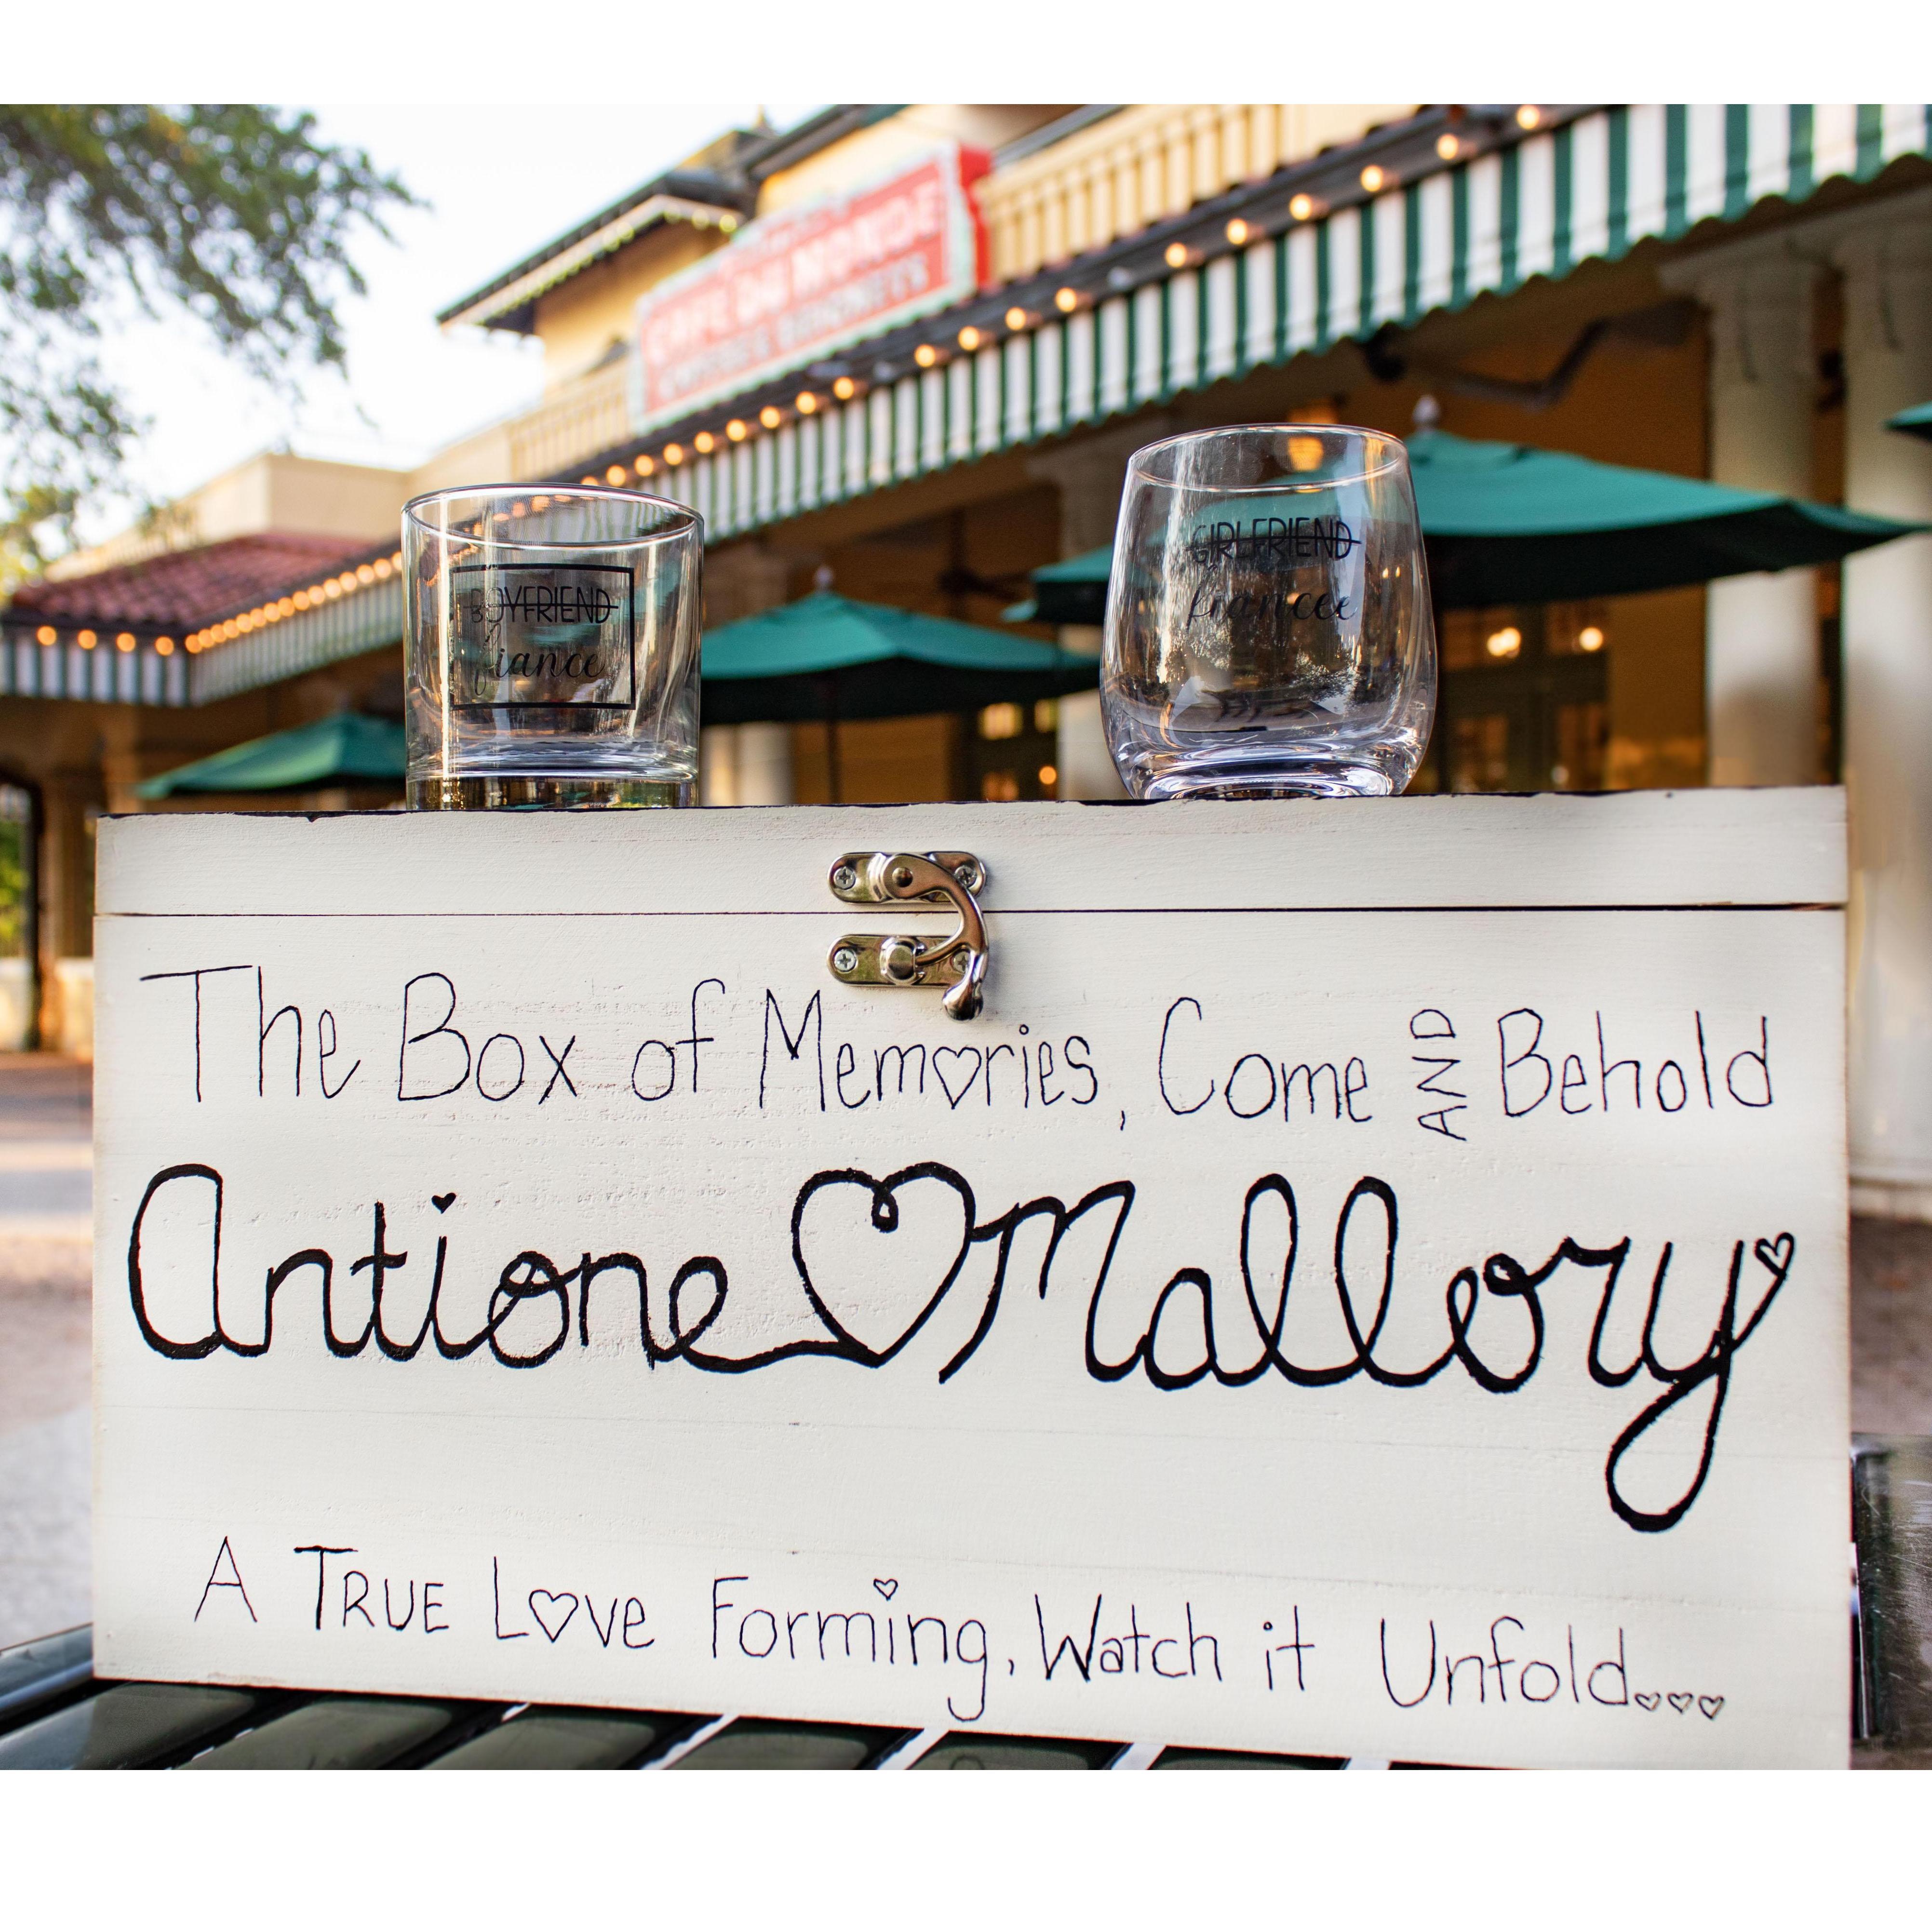 CAFE DU MONDE
COFFEE & BEIGNETS
BOYFRIEND
fiance
GIRLFRIEND
fiancee
The Box of Memories, Come AND Behold
Antione Mallory
A TRUE Love Forming, Watch it Unfold...